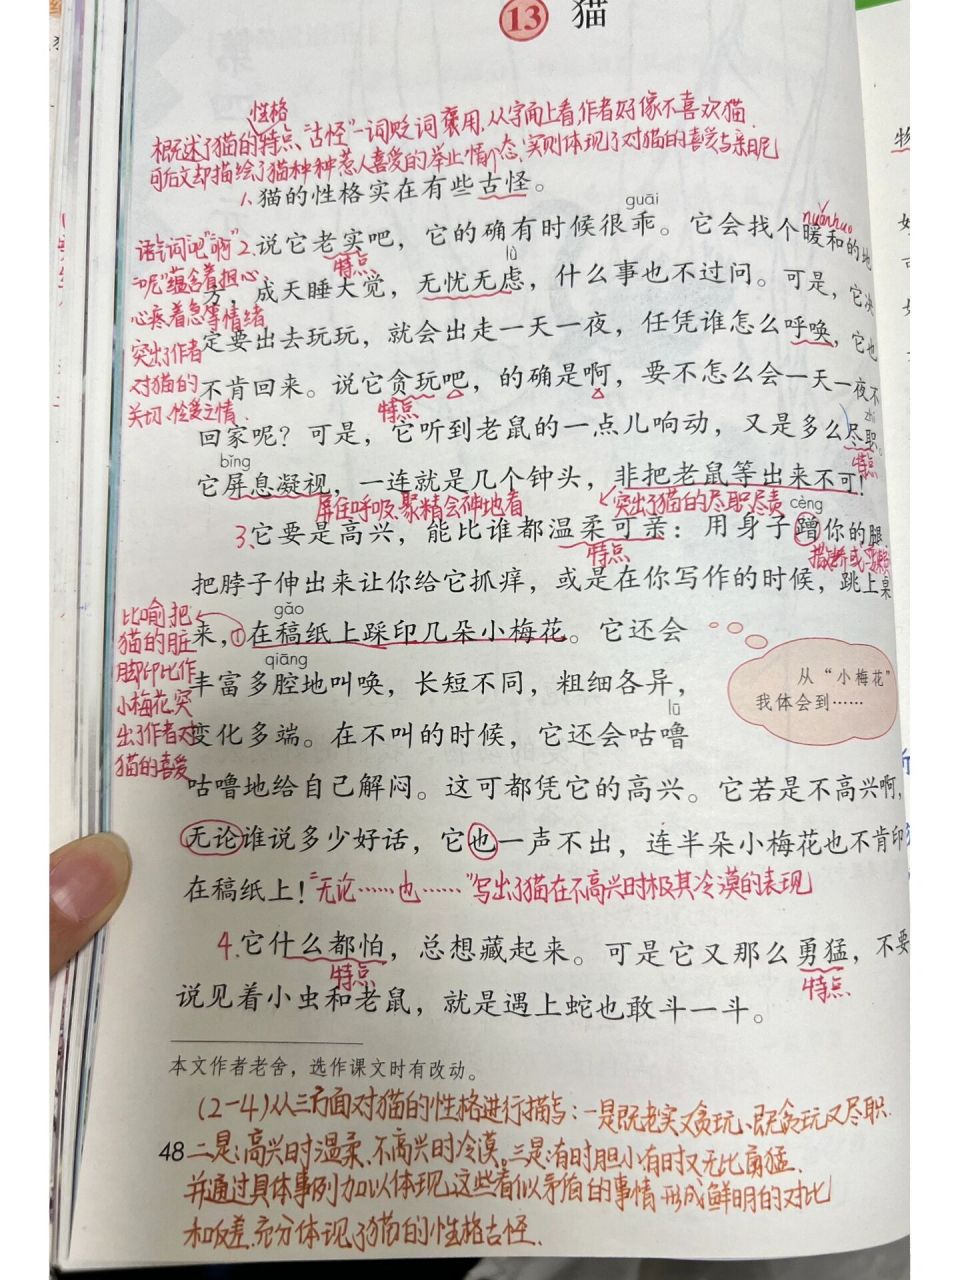 13 猫
性格
概述了猫的特点、"古怪"一词贬词褒用,从字面上看,作者好像不喜欢猫
可后文却描绘了猫种种惹人喜爱的举止情态,实则体现了对猫的喜爱与亲昵
1.猫的性格实在有些古怪。
guāi
nuǎnhuo
语气词"吧""啊"
2.说它老实吧,它的确有时候很乖。它会找个暖和的地
特点
lǜ
"呢"蕴含着担心
方,成天睡大觉,无忧无虑,什么事也不过问。可是,它决
心疼着急等情绪
定要出去玩玩,就会出走一天一夜,任凭谁怎么呼唤,它也
突出了作者
对猫的
不肯回来。说它贪玩吧,的确是啊,要不怎么会一天一夜不
关切、怜爱之情
特点
zhí
回家呢?可是,它听到老鼠的一点儿响动,又是多么尽职。
bǐng
特点
它屏息凝视,一连就是几个钟头,非把老鼠等出来不可!
屏住呼吸,聚精会神地看
突出了猫的尽职尽责
cèng
3.它要是高兴,能比谁都温柔可亲:用身子蹭你的腿,
特点
撒娇或
把脖子伸出来让你给它抓痒,或是在你写作的时候,跳上桌
比喻把
猫的脏
脚印比作
小梅花,突
出了作者对
猫的喜爱
gǎo
来,①在稿纸上踩印几朵小梅花。它还会
qiāng
丰富多腔地叫唤,长短不同,粗细各异,
lū
变化多端。在不叫的时候,它还会咕噜
从"小梅花"
我体会到……
咕噜地给自己解闷。这可都凭它的高兴。它若是不高兴啊,
无论谁说多少好话,它也一声不出,连半朵小梅花也不肯印
在稿纸上!"无论……也……"写出了猫在不高兴时极其冷漠的表现
4.它什么都怕,总想藏起来。可是它又那么勇猛,不要
特点
特点
说见着小虫和老鼠,就是遇上蛇也敢斗一斗。
本文作者老舍,选作课文时有改动。
(2-4)从三方面对猫的性格进行描写:一是既老实又贪玩、既贪玩又尽职.
48
二是:高兴时温柔、不高兴时冷漠。三是:有时胆小有时又无比勇猛.
并通过具体事例加以体现,这些看似矛盾的事情,形成鲜明的对比
和反差,充分体现了猫的性格古怪.